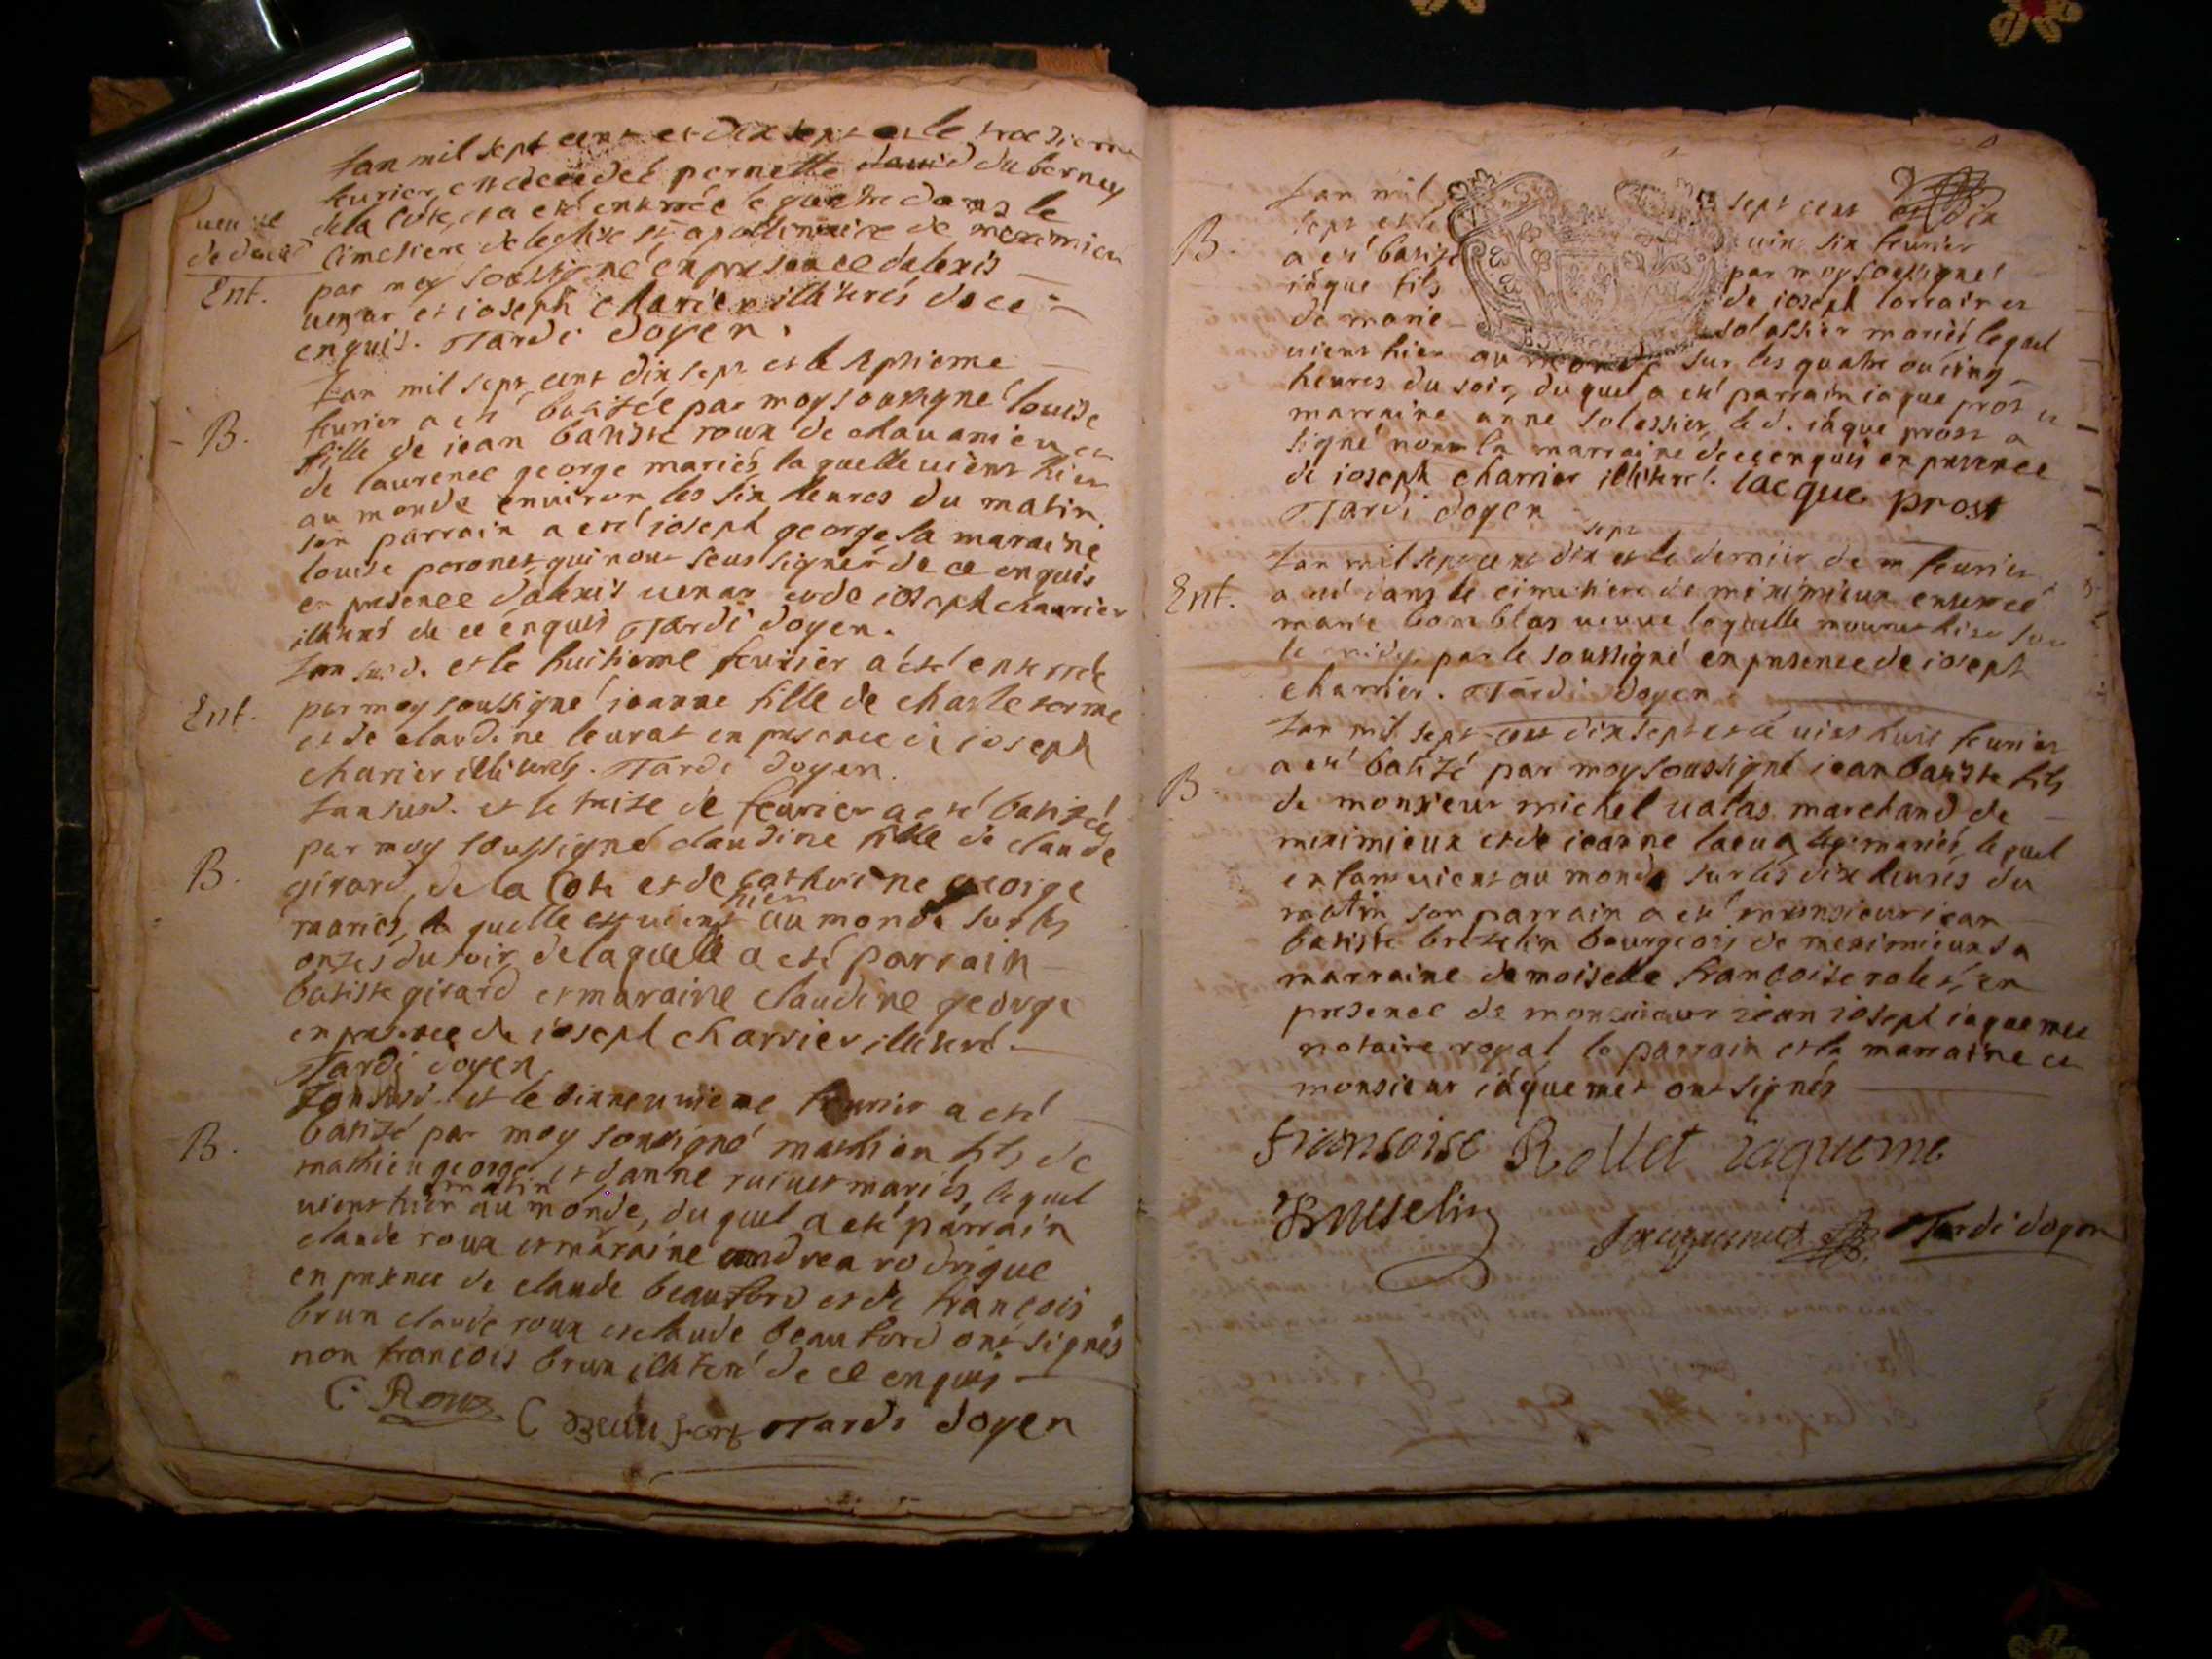 lan mil sept cent et dix sept et le troesieme
feurier, est decedeé pernette dauid du berney
ueuue
de la Côte, et a eté enterrée le quatre dans le
de dauid
cimetiere de leglise st apollinaire de meximieu
Ent.
par moy soussigné en presence dalexis
uenar et ioseph charier illiterés de ce
enquis. Tardi doyen.
lan mil sept cent dix sept et le septieme
B.
feurier a eté batizée par moy soussigné louise
fille de iean batiste roux de chauanieu et
de laurence george mariés, la quelle uient hier
au monde enuiron les six heures du matin.
son parrain a eté ioseph george sa maraine
louise peronet, qui nont sous signés de ce enquis
en presence dalexis uenar et de ioseph charrier
illiterés de ce enquis Tardi doyen.
lan susd. et le huitieme feurier a eté enterrée
Ent.
par moy soussigné ieanne fille de charle
et de claudine leurat en presence de ioseph
charier illiteres. Tardi doyen.
lan susd. et le treize de feurier a eté batizée
par moy soussigné claudine fille de claude
B.
girard, de la Cote et de catherine george
mariés, la quelle est uient hier au monde sur les
onzes du soir de laquelle a eté parrain
batiste girard et maraine claudine george
en presence de ioseph charrier illiteré.
Tardi doyen
lan susd. et le dixneuuieme feurier a eté
B.
batizé par moy soussigné mathieu fils de
mathieu george et danne mariés, le quel
uient hier matin au monde, du quel a eté parrain
claude roux et maraine andrea rodrigue
en presence de claude beauford et de françois
brun claude roux et claude beauford ont signés
non françois brun illiteré de ce enquis
C. Roux C Beaufort Tardi doyen
lan mil sept cent et dix
sept et le uint six feurier
B.
a eté batizé par moy soussigné
iâque fils de ioseph lorrain et
de marie solassier mariés lequel
uient hier au monde sur les quatre ou cinq
heures du soir, du quel a eté parrain iaque prost et
marraine anne solessier, le d. iâque prost a
signé non la marraine de ce enquis en presence
de ioseph charrier illiteré. Iacque prost
Tardi doyen
lan mil sept cent dix sept et le dernier de feurier
Ent.
a eté dans le cimetiere de meximieux enterrée
marie bomblas ueuue laquelle mourut hier sur
le midy par le soussigné en presence de ioseph
charrier. Tardi doyen
lan mil sept cent dix sept et le uint huit feurier
a eté batizé par moy soussigné iean batiste fils
B.
de monsieur michel ualas marchand de
meximieux et de ieanne mariés, le quel
enfant uient au monde sur les dix heures du
matin son parrain a eté monsieur iean
batiste bresselin bourgeois de meximieux sa
marraine demoiselle françoise rolet, en
presence de monsieur iean ioseph iaquemet
notaire royal le parrain et la marraine et
monsieur iâquemet ont signés
fransoise Rollet iaqueme
Brusselin
Jacquemet Tardi doyen